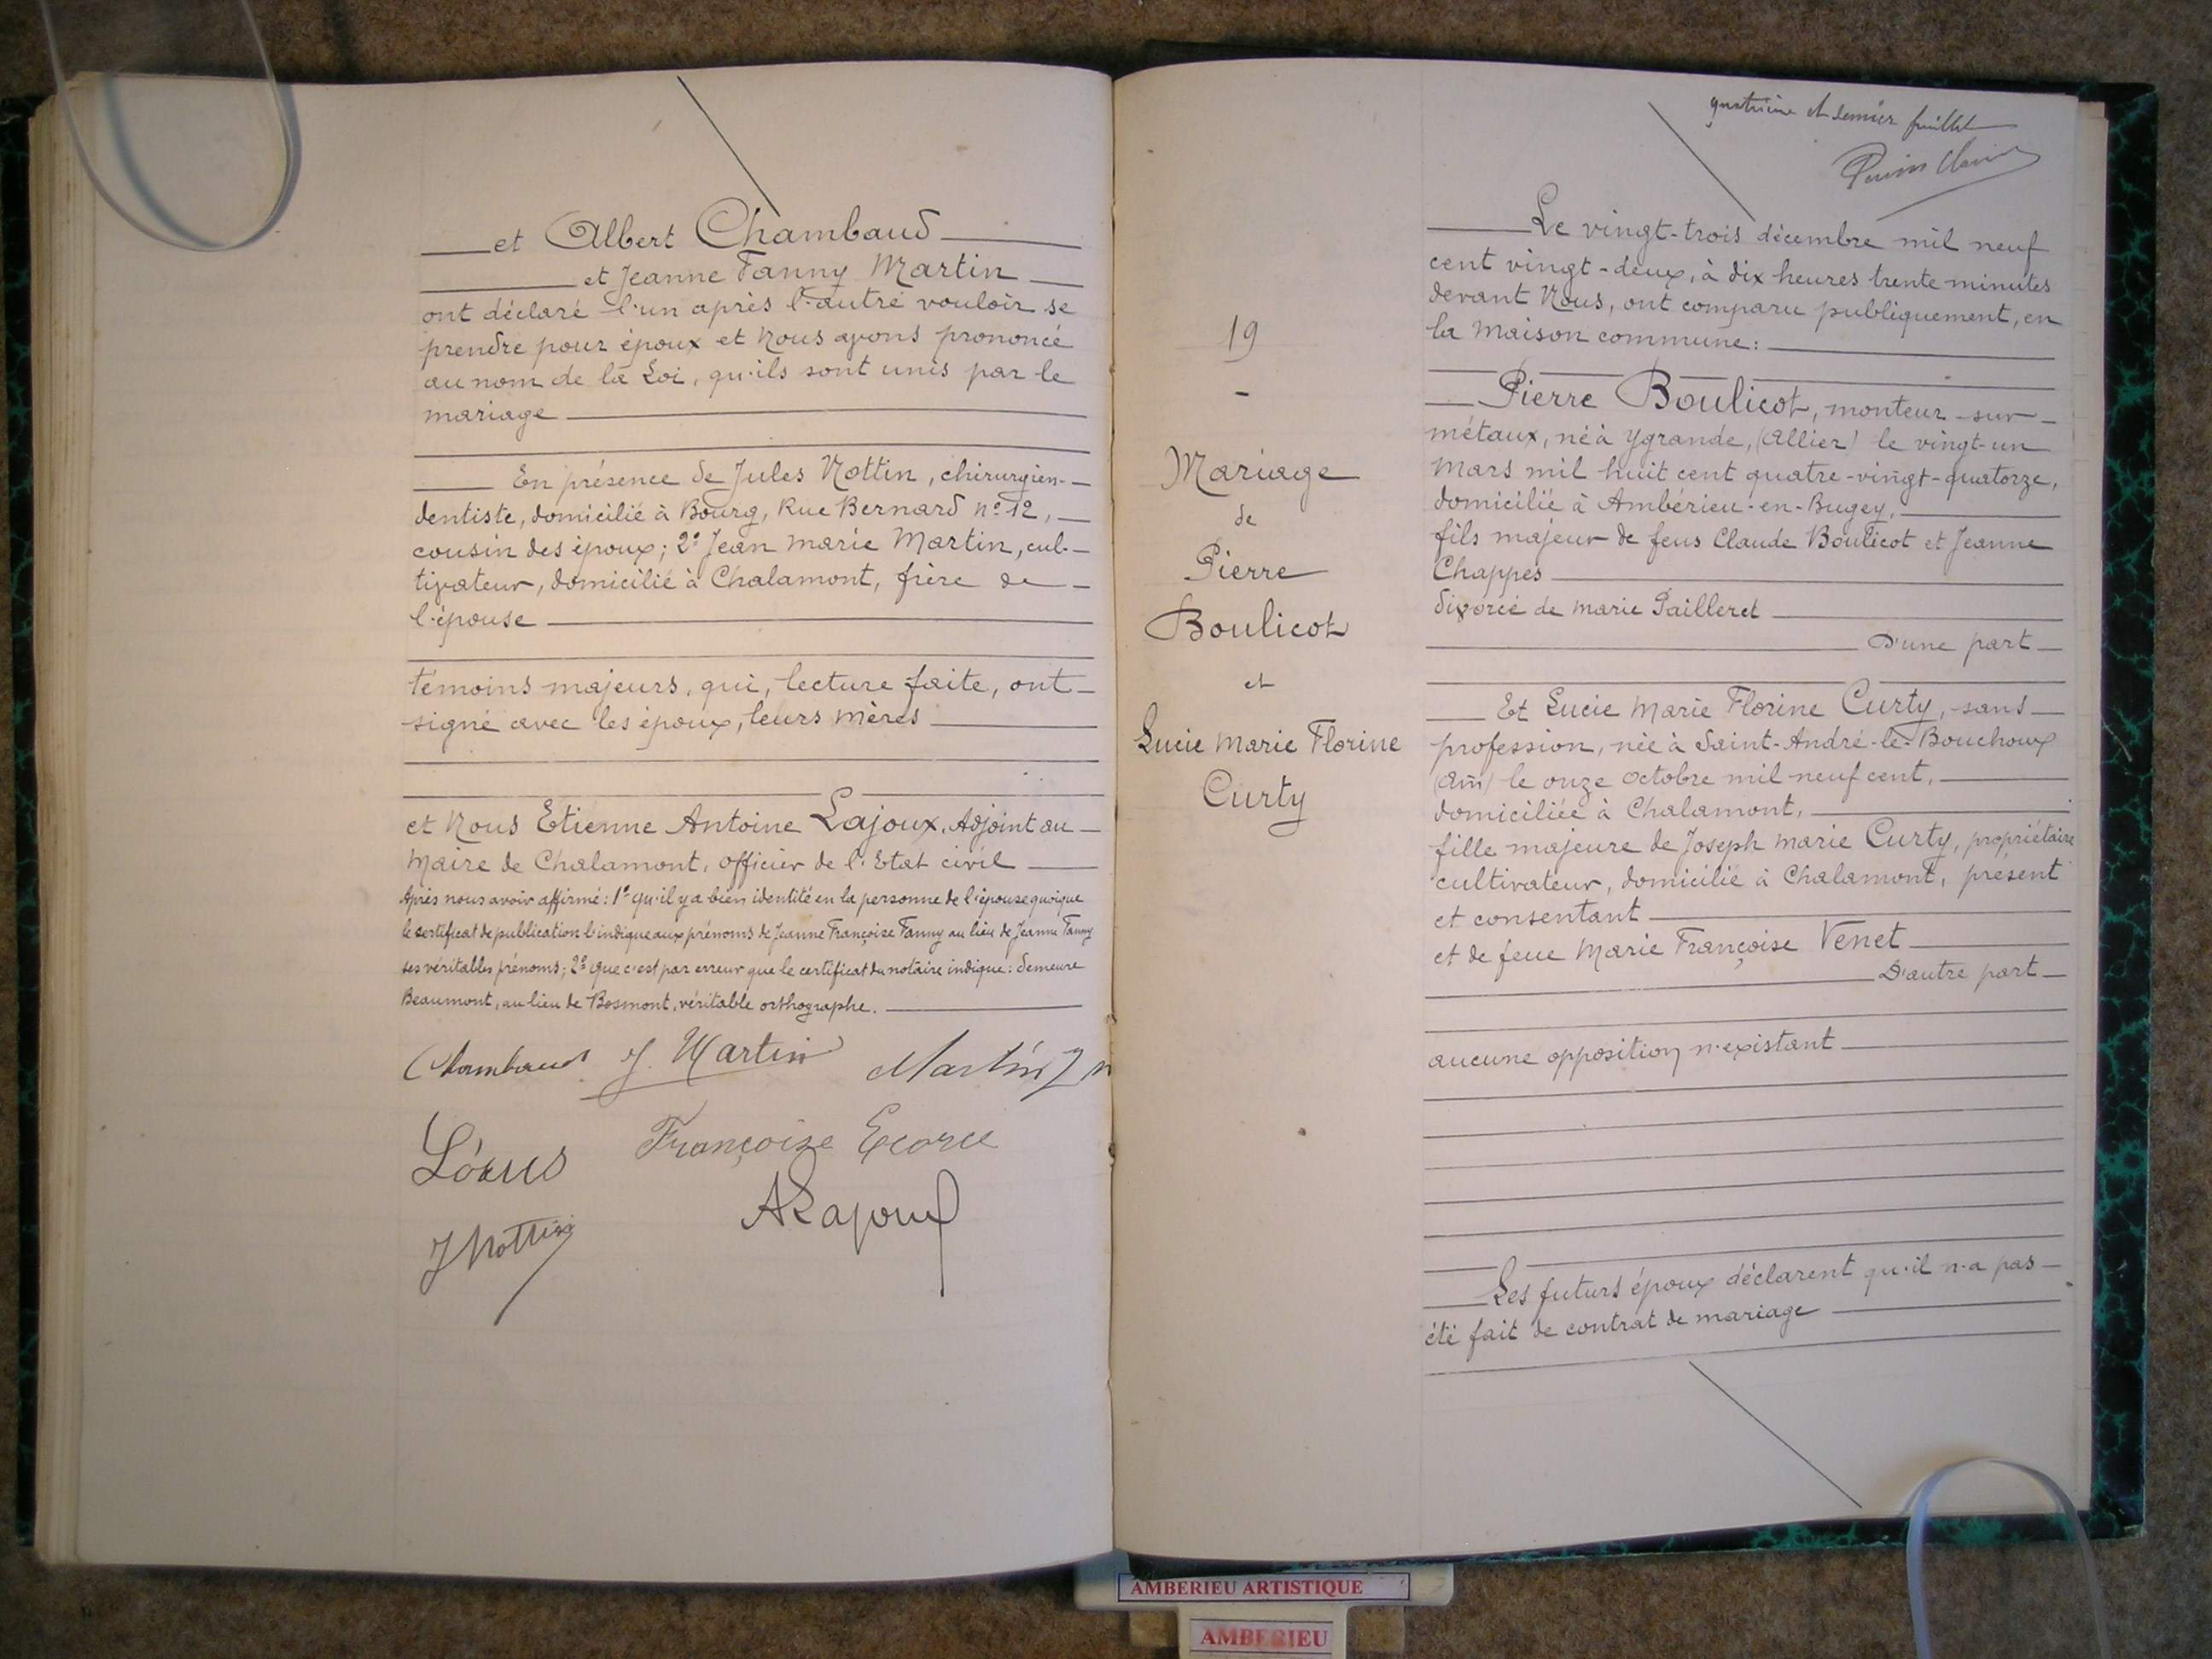 et Albert Chambaud
et Jeanne Fanny Martin
ont déclaré l'un après l'autre vouloir se
prendre pour époux et Nous avons prononcé
au nom de la Loi, qu'ils sont unis par le
mariage
En présence de Jules Nottin, chirurgien-
dentiste, domicilié à Bourg, Rue Bernard n° 12,
cousin des époux; 2° Jean Marie Martin, cul-
tivateur, domicilié à Chalamont, frère de
l'épouse
témoins majeurs, qui, lecture faite, ont
signé avec les époux, leurs mères
et Nous Etienne Antoine Lajoux, Adjoint au
Maire de Chalamont, officier de l'Etat civil
Après nous avoir affirmé: 1° qu'il y a bien identité en la personne de l'épouse quoique
le certificat de publication l'indique aux prénoms de Jeanne Françoise Fanny au lieu de Jeanne Fanny
ses véritables prénoms; 2° que c'est par erreur que le certificat du notaire indique: demeure
Beaumont, au lieu de Bosmont, véritable orthographe.
Chambaud J. Martin Martin J m
Françoise Ecorce
ALajoux
J Nottin
quatrième et dernier feuillet
Le vingt-trois décembre mil neuf
cent vingt-deux, à dix heures trente minutes
devant Nous, ont comparu publiquement, en
la Maison commune:
19
-
Mariage
de
Pierre
Boulicot
et
Lucie Marie Florine
Curty
Pierre Boulicot, monteur-sur-
métaux, né à Ygrande, (Allier) le vingt-un
Mars mil huit cent quatre-vingt-quatorze,
domicilié à Ambérieu-en-Bugey,
fils majeur de feus Claude Boulicot et Jeanne
Chappes
divorcé de Marie Pailleret
D'une part
Et Lucie Marie Florine Curty, sans
profession, née à Saint-André-le-Bouchoux
(Ain) le onze octobre mil neuf cent,
domiciliée à Chalamont,
fille majeure de Joseph Marie Curty, propriétaire
cultivateur, domicilié à Chalamont, présent
et consentant
et de feue Marie Françoise Venet
D'autre part
aucune opposition n'existant
Les futurs époux déclarent qu'il n'a pas
été fait de contrat de mariage
AMBERIEU ARTISTIQUE
AMBERIEU